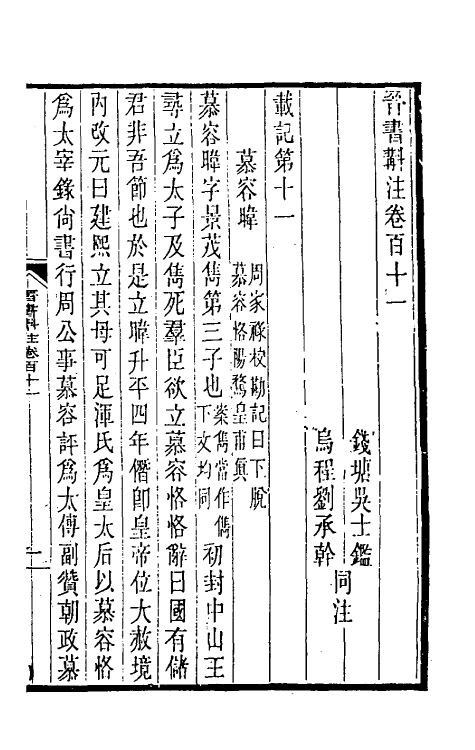 晉書斠注卷百十一
錢塘吳士鑑
烏程劉承幹
同注
載記第十一
慕容暐
周家祿校勘記曰下脫
慕容恪陽騖皇甫真
慕容暐字景茂儁第三子也
案儁當作儁
下文均同
初封中山王
尋立爲太子及儁死羣臣欲立慕容恪恪辭曰國有儲
君非吾節也於是立暐升平四年僭卽皇帝位大赦境
內改元曰建熙立其母可足渾氏爲皇太后以慕容恪
爲太宰錄尙書行周公事慕容評爲太傅副贊朝政慕
晉書斠注卷百十一
一